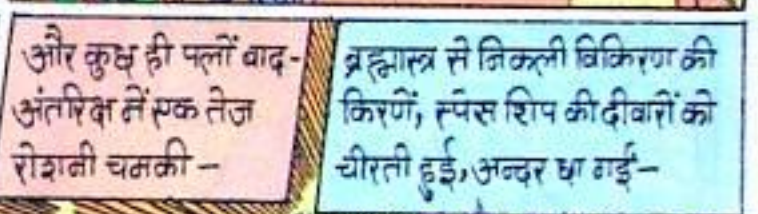 और कुछ ही पलों बाद-
अंतरिक्ष में एक तेज
रोशनी चमकी -
ब्रह्मास्त्र से निकली विकिरण की
किरणें, स्पेस शिप की दीवारों को
चीरती हुई, अन्दर छा गई-